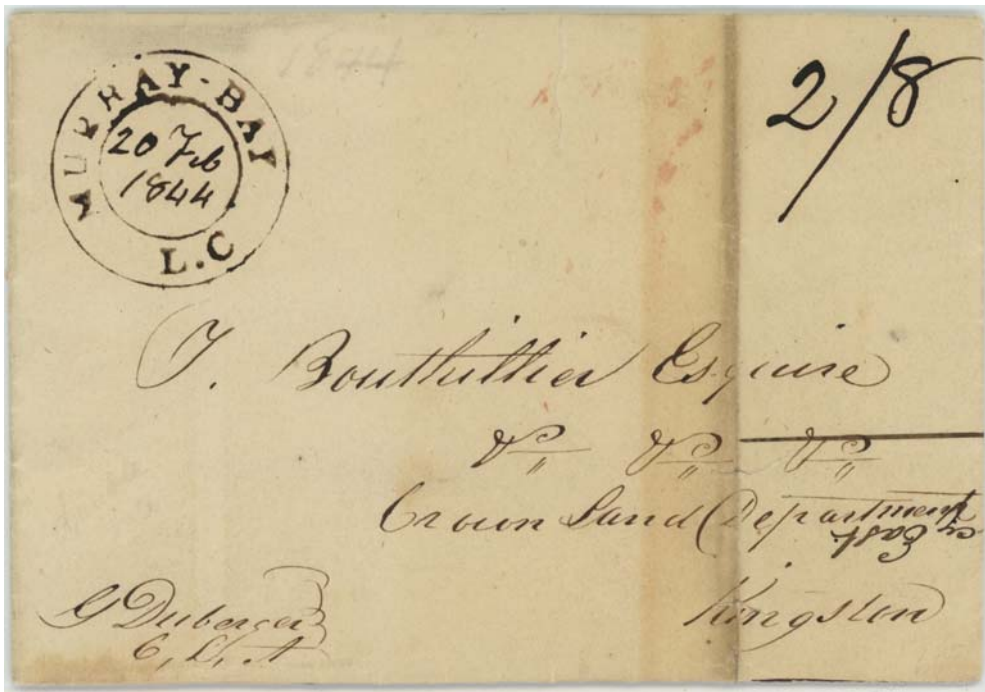 1844
MURRAY-BAY
20 Feb
1844
L.C
2/8
T. Bouthillier Esquire
&c &c &c
Crown Land Department
East.
Kingston
G Duberger
C, L, A